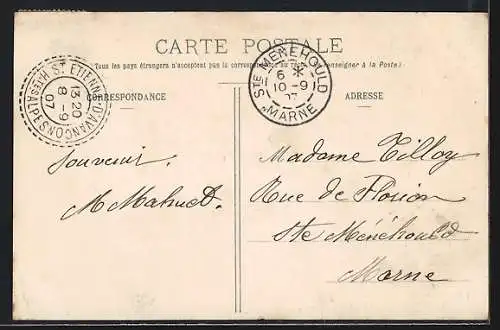 CARTE POSTALE
Tous les pays étrangers n'acceptent pas la correspondance au recto (Se renseigner à la Poste)
CORRESPONDANCE
ADRESSE
ST ETIENNE D'AVANÇON
13 20
8 - 9
07
HTES ALPES
STE MENEHOULD
6 *
10 - 9
07
MARNE
Souvenir.
M Mahuet.
Madame Tilloy
Rue de Florion
Ste Ménéhould
Marne